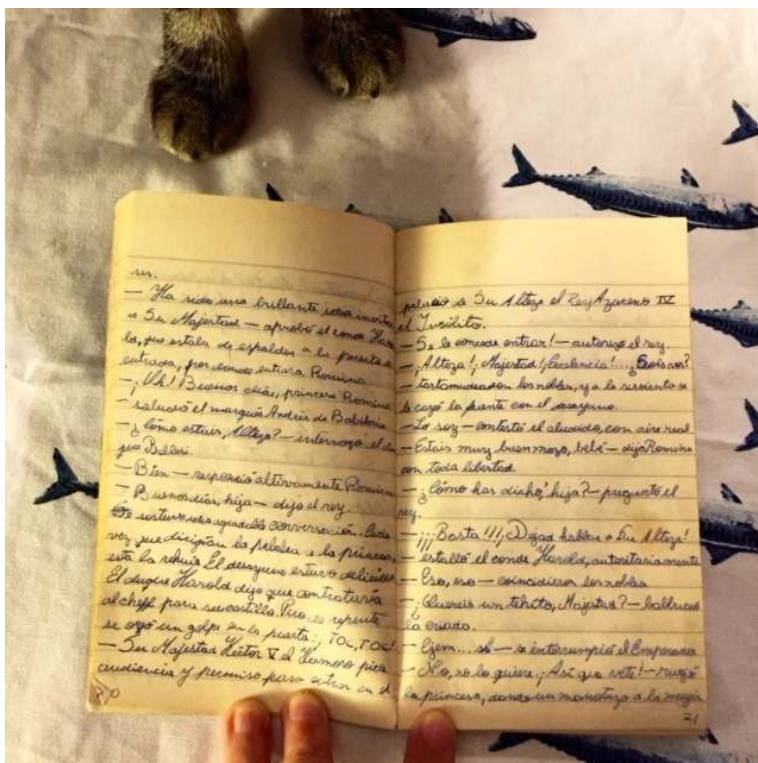 ser.
— Ha sido una brillante idea invitar
a Su Majestad — aprobó el conde Haro
ld, que estaba de espaldas a la puerta de
entrada, por donde entrara Romina
— ¡Uh! Buenos días, princesa Romina
— saludó el marqués Andrés de Babilonia
— ¿Cómo estáis, Alteza? — interrogó el du
que
— Bien — respondió altivamente Romina
— Buenos días, hija — dijo el rey.
Se sostuvo una agradable conversación. Cada
vez que dirigían la palabra a la princesa,
esta la rehuía. El desayuno estuvo delicioso
El duque Harold dijo que contrataría
al cheff para su castillo. Pero de repente
se oyó un golpe en la puerta: ¡TOC, TOC!
— Su Majestad Héctor V el Hermoso pide
audiencia y permiso para entrar en el
20
palacio a Su Alteza el Rey Azuceno IV
el Insólito.
— Se le concede entrar! — autorizó el rey.
— ¡Alteza! ¡Majestad! ¡Excelencia!... ¿Sois vos?
— tartamudearon los nobles, y a la sirvienta se
le cayó la fuente con el desayuno.
— Lo soy — contestó el aludido, con aire real
— Estáis muy buen mozo, bebé — dijo Romina
con toda libertad.
— ¿Cómo has dicho, hija? — preguntó el
rey.
— ¡¡¡Basta!!! ¡Dejad hablar a Su Alteza!
estalló el conde Harold, autoritariamente
— Eso, eso — coincidieron los nobles
— ¿Queréis un tehito, Majestad? — balbuceó
la criada.
— Ejem... sí — se interrumpió el Emperador
— No, no lo quiere. ¡Así que vete! — rugió
la princesa, dando un manotazo a la
21